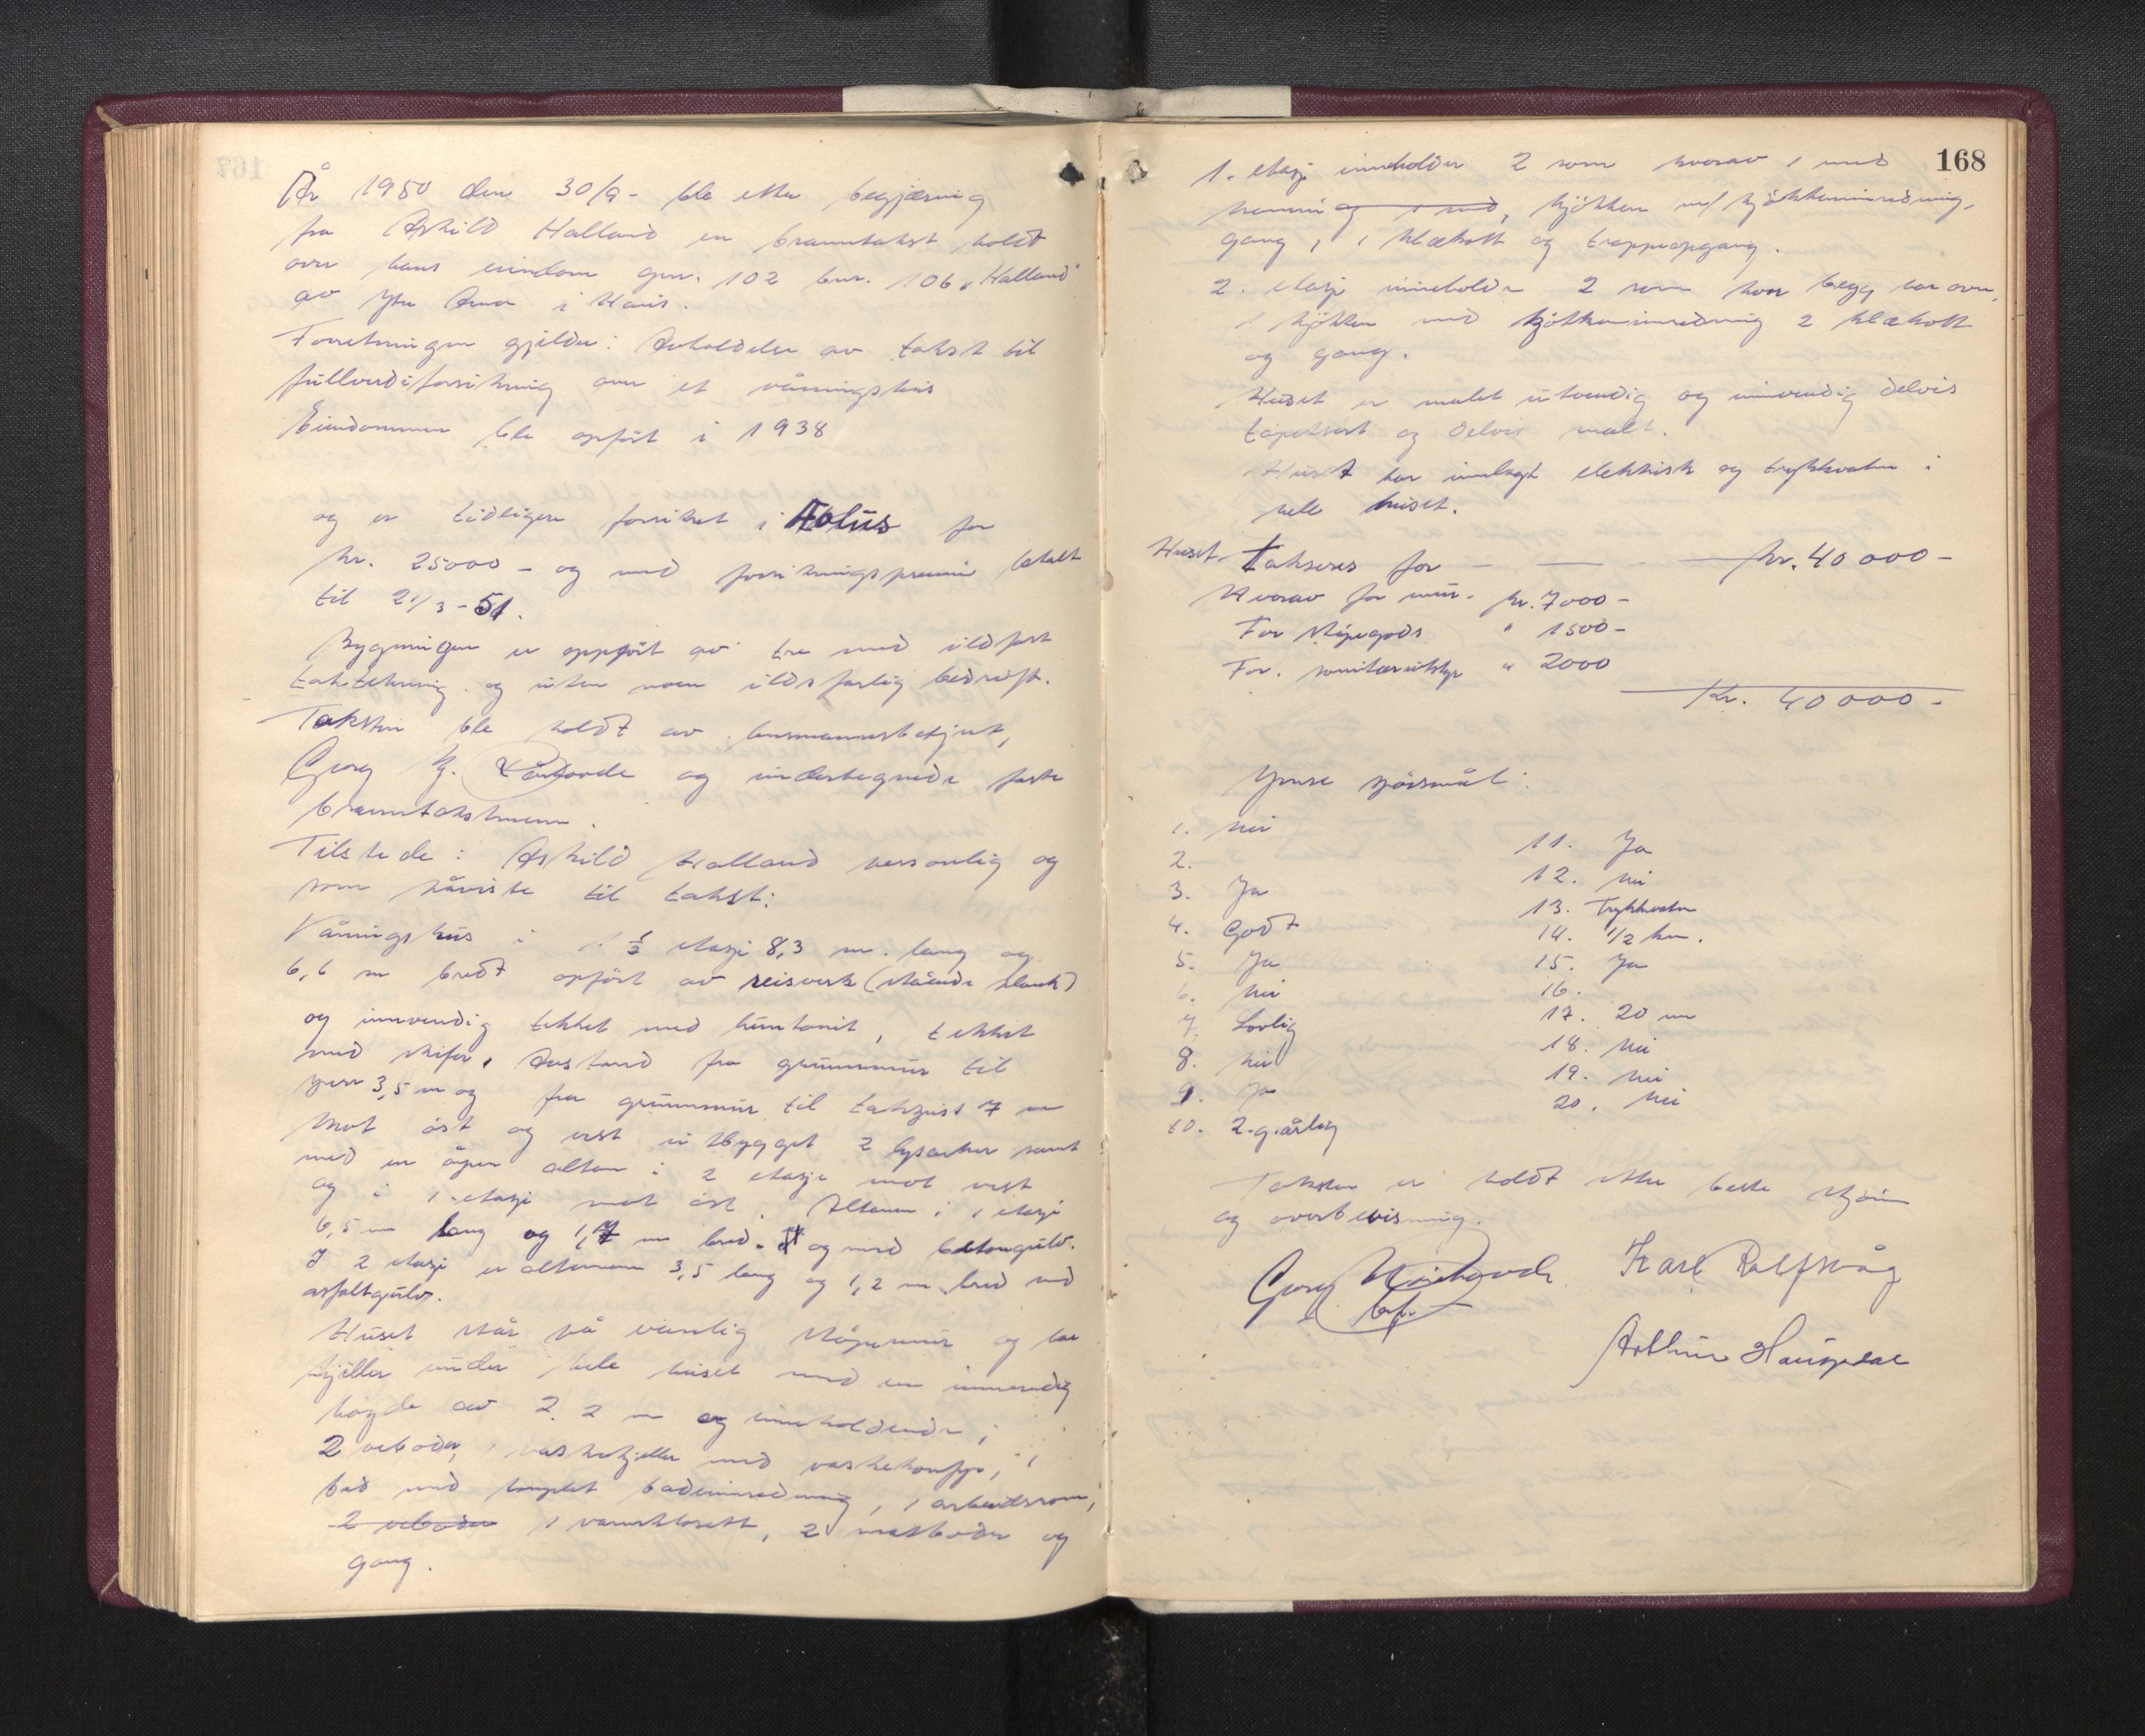 År 1950 den 30/9 - ble etter begjæring
fra Askild Halland en branntakst holdt
over hans eiendom gnr. 102 bnr. 106 "Halland"
av Ytre Arna i Haus.
Forretningen gjelder: Avholdelse av takst til
fullverdiforsikring over et våningshus
Eiendommen ble opført i 1938
og er tidligere forsikret i Æolus for
kr. 25000 - og med forsikringspremie betalt
til 21/3 - 51.
Bygningen er oppført av tre med ildfast
taktekning og uten noen ildsfarlig bedrift.
Taksten ble holdt av lensmannsbetjent,
Georg K. og undertegnede faste
branntakstmenn.
Tilstede: Askild Halland personlig og
som påviste til takst:
Våningshus i 1 1/2 etasje 8,3 m. lang og
6,6 m bredt opført av reisverk (stående plank)
og innvendig tekket med huntonit, tekket
med skifer. Avstand fra grunnmur til
3,5 m og fra grunnmur til 7 m
Mot øst og vest utbygget 2 lysarker samt
med en åpen altan i 2 etasje mot vest
og i 1. etasje mot øst. Altanen i 1 etasje
6,5 m lang og 1,7 m bred. og med betongulv.
I 2 etasje er altanen 3,5 lang og 1,2 m bred med
asfaltgulv.
Huset står på vanlig støpemur og har
kjeller under hele huset med en innvendig
høyde av 2.2 m og inneholdende;
2 veboder, 1 vaskekjeller med vaskekonge, 1
bad med komplet badeinnredning, 1 arbeidsrom,
2 veboder 1 vannklosett, 2 matboder og
gang.
168
1. etasje inneholder 2 rom hvorav 1 med
og 1 med, kjøkken m/ kjøkkeninnredning,
gang, 1 klækott og trappeopgang.
2. etasje inneholder 2 rom hvor begg har ovn,
1 kjøkken med kjøkkeninnredning 2 klækott
og gang.
Huset er malet utvendig og innvendig delvis
tapetsert og delvis malt.
Huset har innlagt elektrisk og trykkvatn i
hele huset.
Huset takseres for - kr. 40 000 -
Hvorav for mur. kr. 7000 -
For støpegods " 1500 -
For. sanitærutstyr " 2000
Kr. 40 000 -
Ymse spørsmål:
1. Nei
2.
3. Ja
4. Godt
5. Ja
6. Nei
7. Lovlig
8. Nei
9. Ja
10. 2.g.årlig
11. Ja
12. Nei
13. Trykkvatn
14. 1/2 km.
15. Ja
16.
17. 20 m
18. Nei
19. Nei
20. Nei
Taksten er holdt etter beste skjønn
og overbevisning.
Georg
bf.
Karl Rolfsvåg
Arthur Haugedal